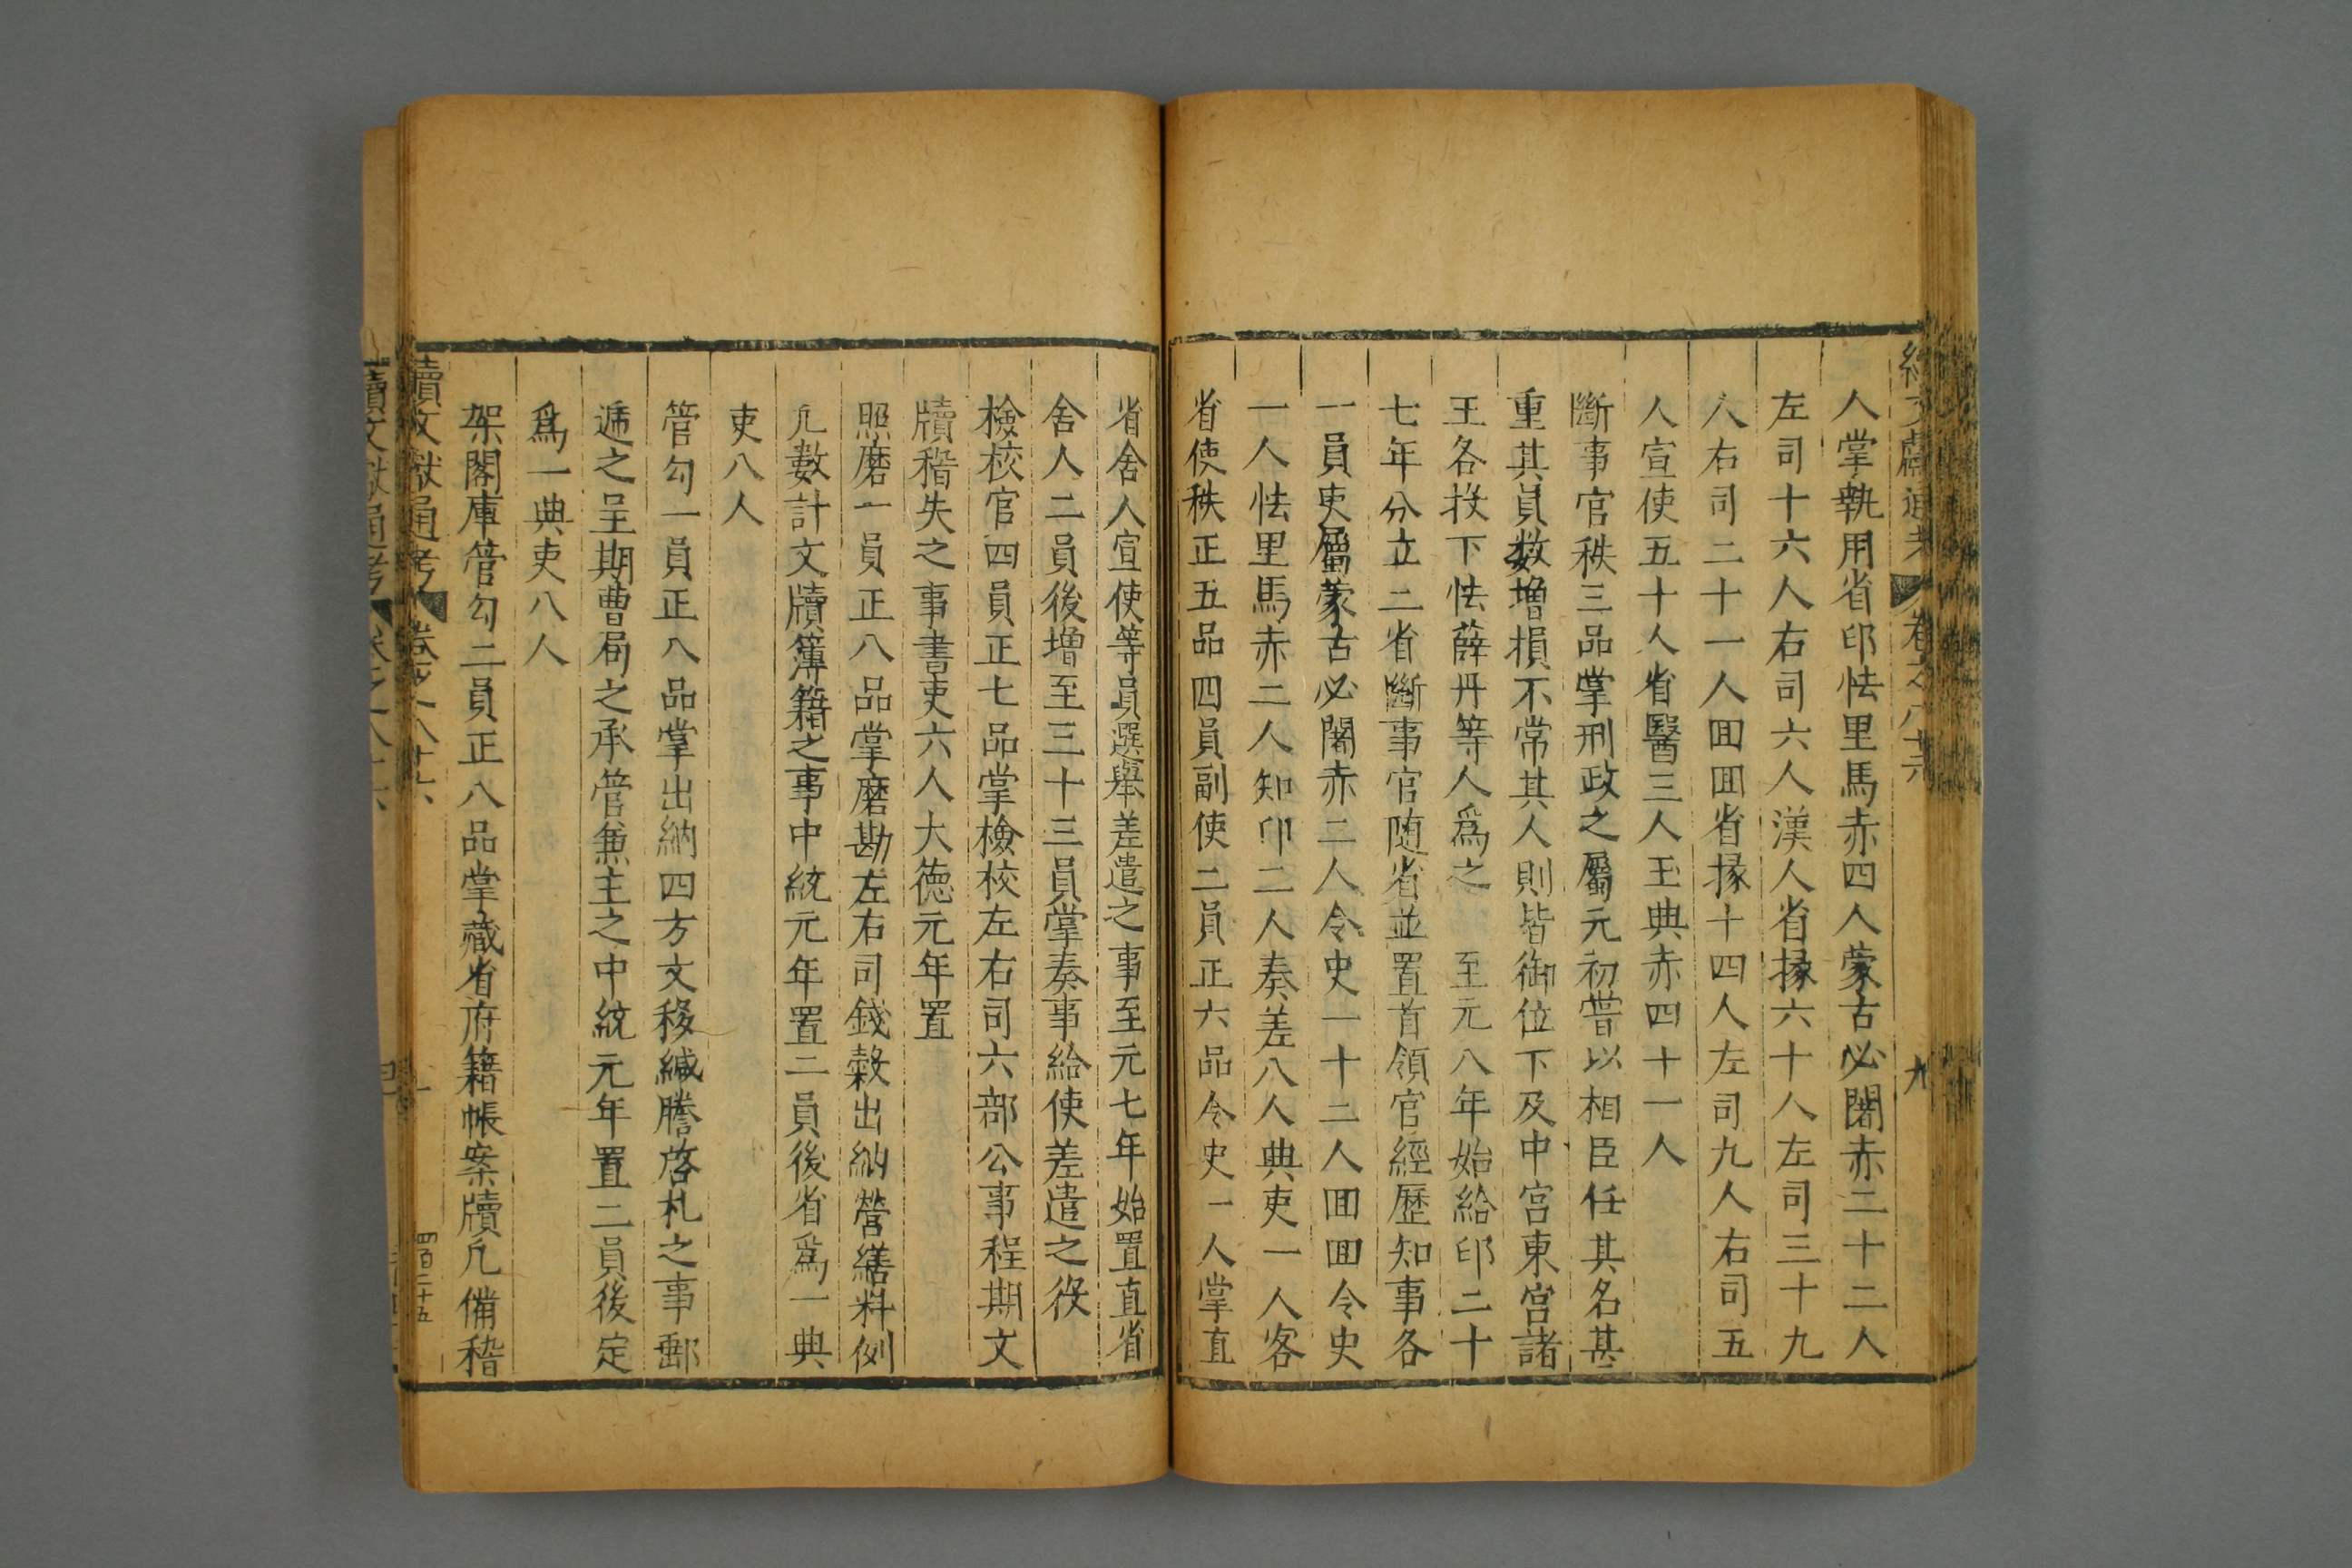 續文獻通考 卷之八十六 九
人掌執用省印怯里馬赤四人蒙古必闍赤二十二人
左司十六人右司六人漢人省掾六十人左司三十九
人右司二十一人囬囬省掾十四人左司九人右司五
人宣使五十人省醫三人玉典赤四十一人
斷事官秩三品掌刑政之屬元初嘗以相臣任其名甚
重其員數增損不常其人則皆御位下及中宮東宮諸
王各投下怯薛丹等人爲之 至元八年始給印二十
七年分立二省斷事官隨省並置首領官經歷知事各
一員吏屬蒙古必闍赤二人令史一十二人囬囬令史
一人怯里馬赤二人知印二人奏差八人典吏一人客
省使秩正五品四員副使二員正六品令史一人掌直
省舍人宣使等員選舉差遣之事至元七年始置直省
舍人二員後增至三十三員掌奏事給使差遣之役
檢校官四員正七品掌檢校左右司六部公事程期文
牘稽失之事書吏六人大德元年置
照磨一員正八品掌磨勘左右司錢穀出納營繕料例
凢數計文牘簿籍之事中統元年置二員後省爲一典
吏八人
管勾一員正八品掌出納四方文移緘謄啓札之事郵
遞之呈期曹局之承管兼主之中統元年置二員後定
爲一典吏八人
架閣庫管勾二員正八品掌藏省府籍帳案牘凢備稽
續文獻通考 卷之八十六 四百二十五
續文獻通考